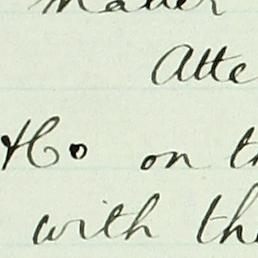 matter
Atte
Ho on t
with th